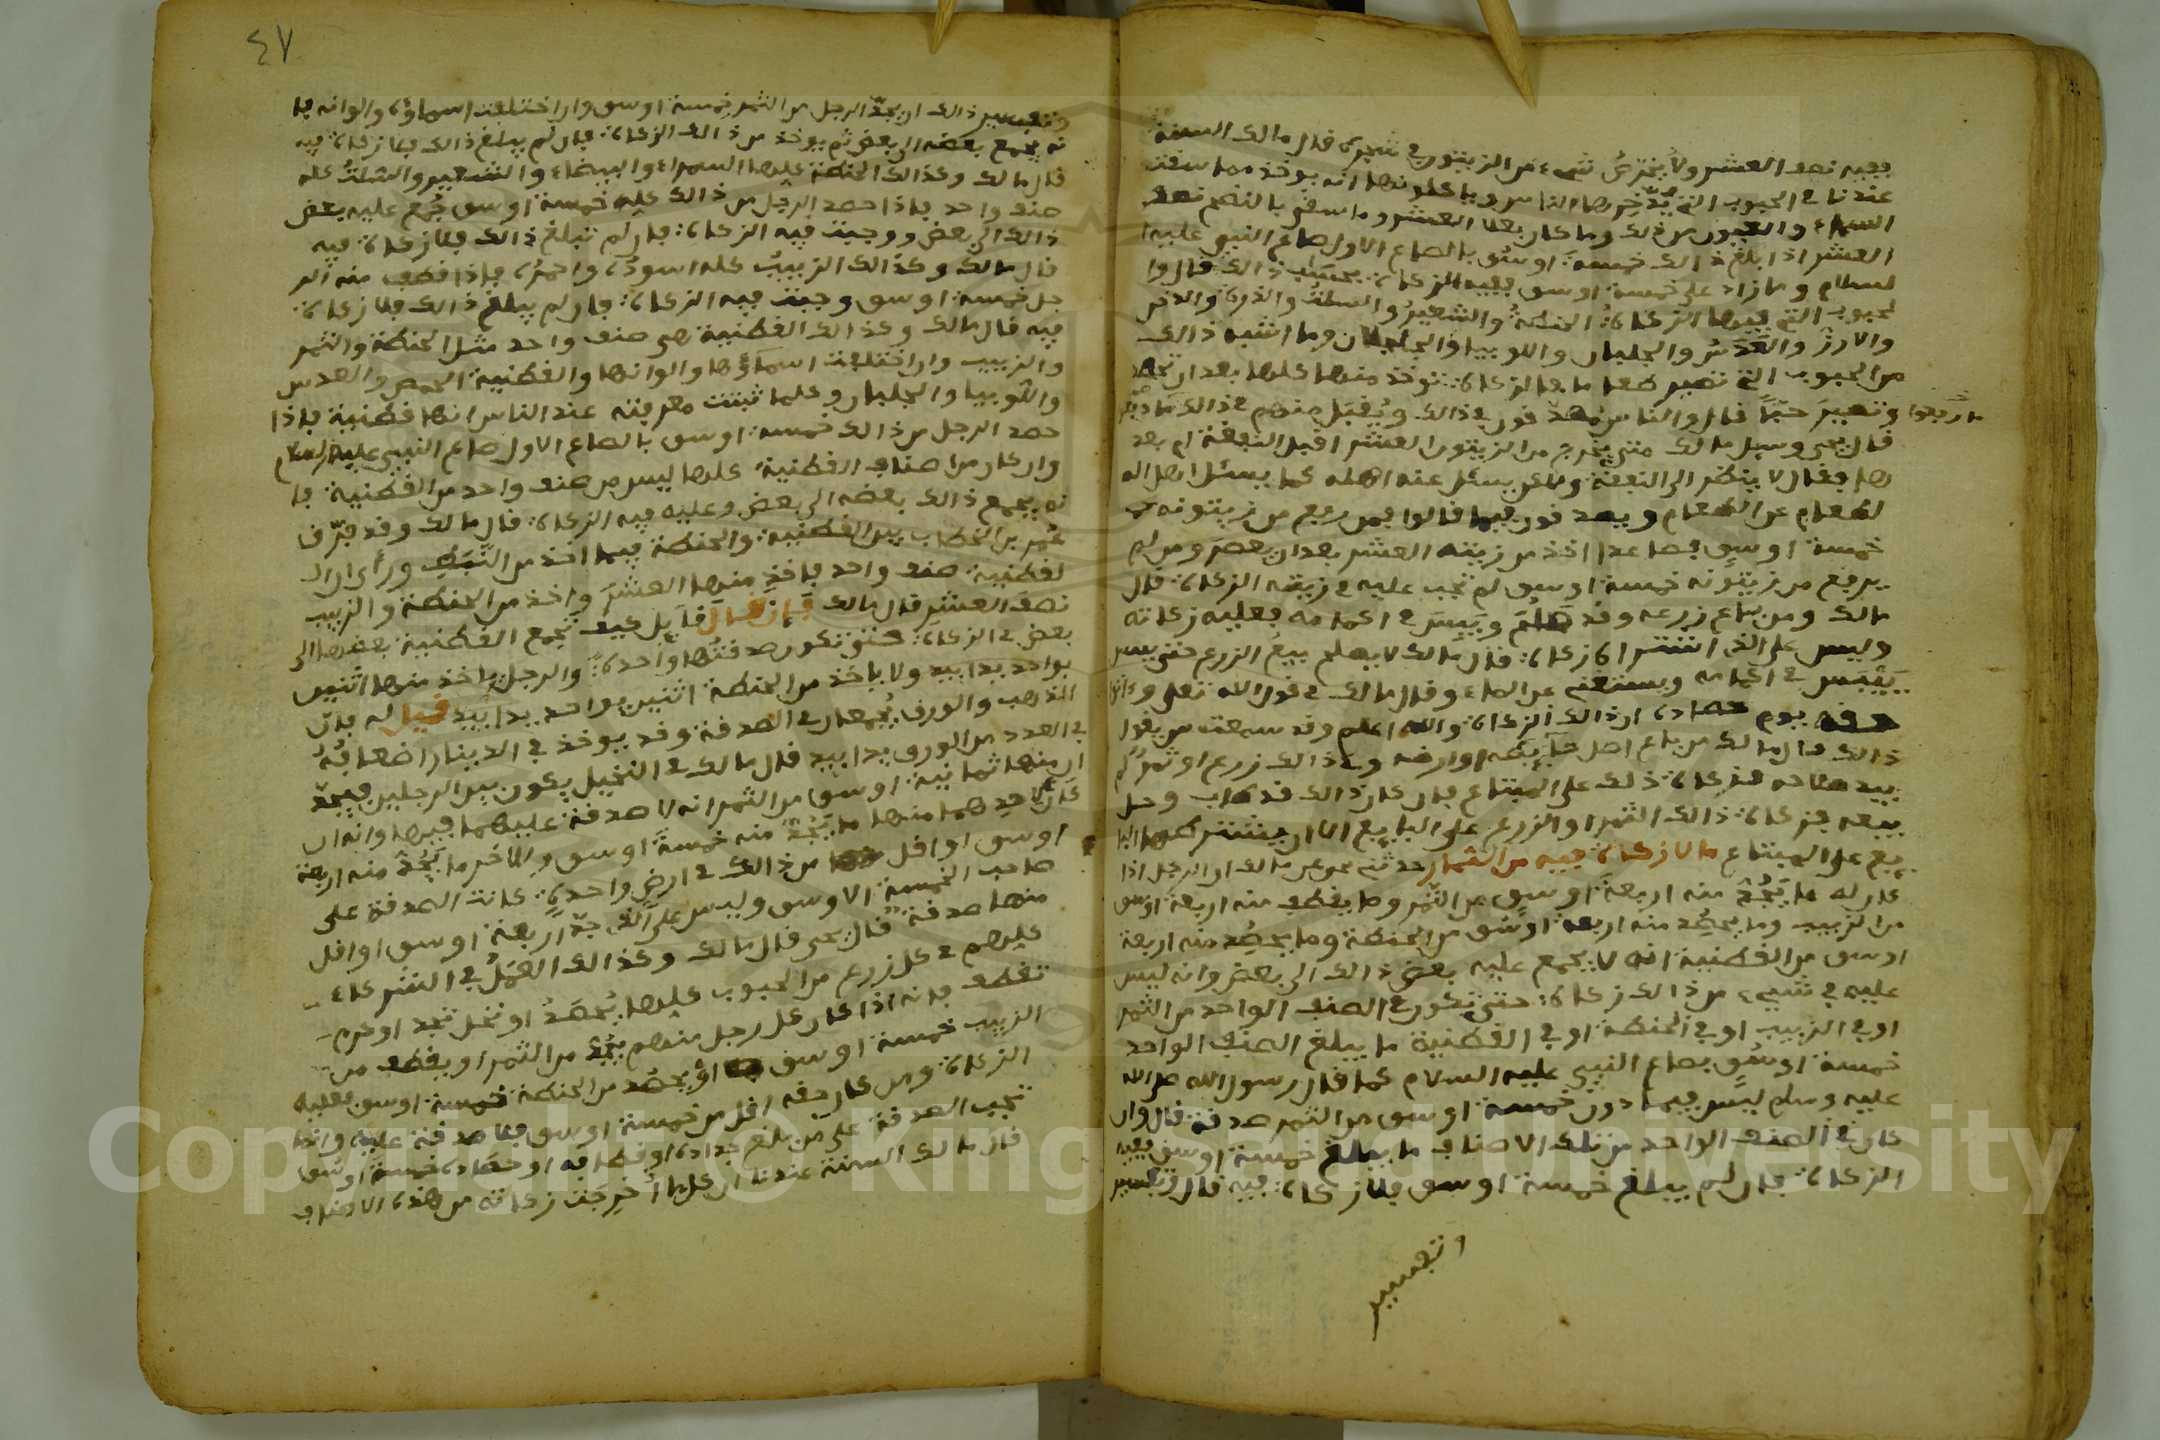 ففيه نصف العشر ولا يخترص شيء من الزيتون في شجره قال مالك السنة
عندنا في الحبوب التي يدّخرها الناس وياكلونها انه يوخذ مما سقت
السماء والعيون من ذلك وما كان بعلا العشر وما سقي بالنضح نصف
العشر اذا بلغ ذالك خمسة اوسق بالصاع الاول صاع النبي عليه ا
لسلام وما زاد على خمسة اوسق ففيه الزكاة بحساب ذالك قال وا
لحبوب التي فيها الزكاة الحنطة والشعير والسلت والذرة والدخن
والارز والعدس والجلبان واللوبيا والجلجلان وما اشبه ذالك
من الحبوب التي تصير طعاما فالزكاة توخذ منها كلها بعد ان تحصد
وتصير حبّا قال والناس مصدّقون في ذالك ويُقبل منهم في ذالك ما دفعوا
قال يحيى وسيل مالك متى يخرج من الزيتون العشر اقبل النفقة ام بعد
ها فقال لا ينظر الى النفقة ولكن يسئل عنه اهله كما يسئل اهل ا
لطعام عن الطعام ويصدقون فيما قالوا فمن رفع من زيتونه
خمسة اوسق فصاعدا اخذ من زيته العشر بعد ان يعصر ومن لم
يرفع من زيتونه خمسة اوسق لم تجب عليه في زيته الزكاة قال
مالك ومن باع زرعه وقد صلح ويبس في اكمامه فعليه زكاته
وليس على الذي اشتراه زكاة قال مالك لا يصلح بيع الزرع حتى ييبس
في اكمامه ويستغني عن الماء وقال مالك في قول الله تعلى وءاتوا
حقه يوم حصاده ان ذالك الزكاة والله اعلم وقد سمعت من يقول
ذالك قال مالك من باع اصل حايطه او ارضه وفي ذالك زرع او ثمر لم
يبد صلاحه فزكاة ذلك على المبتاع فان كان ذالك قد طاب وحل
بيعه فزكاة ذالك الثمر او الزرع على البايع الا ان يشترطها البا
يع على المبتاع ما لا زكاة فيه من الثمار حدثني يحيى عن مالك ان الرجل اذا
كان له ما يَجُدّ منه اربعة اوسق من الثمر وما يقطف منه اربعة اوسق
من الزبيب وما يحصُد منه اربعة اوسق من الحنطة وما يحصُد منه اربعة
اوسق من القطنية انه لا يجمع عليه بعض ذالك الى بعض وانه ليس
عليه في شيء من ذالك زكاة حتى تكون في الصنف الواحد من الثمر
او في الزبيب او في الحنطة او في القطنية ما يبلغ الصنف الواحد
خمسة اوسُق بصاع النبي عليه السلام كما قال رسول الله صلى الله
عليه وسلم ليس فيما دون خمسة اوسق من الثمر صدقة قال وان
كان في الصنف الواحد من تلك الاصناف ما يبلغ خمسة اوسق ففيه
الزكاة فان لم يبلغ خمسة اوسق فلا زكاة فيه قال وتفسير
٤٧
وتفسير ذالك ان يجدّ الرجل من الثمر خمسة اوسق وان اختلفت اسماؤه والوانه فا
نه يجمع بعضه الى بعض ثم يوخذ من ذالك الزكاة فان لم يبلغ ذالك فلا زكاة فيه
قال مالك وكذالك الحنطة كلها السمراء والبيضاء والشعير والسُلت كله
صنف واحد فاذا حصد الرجل من ذالك كله خمسة اوسق جُمع عليه بعض
ذالك الى بعض ووجبت فيه الزكاة فان لم تبلغ ذالك فلا زكاة فيه
قال مالك وكذالك الزبيب كله اسوده واحمره فاذا قطف منه الر
جل خمسة اوسق وجبت فيه الزكاة فان لم يبلغ ذالك فلا زكاة
فيه قال مالك وكذالك القطنية هي صنف واحد مثل الحنطة والثمر
والزبيب وان اختلفت اسماؤها والوانها والقطنية الحمص والعدس
واللوبيا والجلبان وكلما ثبتت معرفته عند الناس انها قطنية فاذا
حصد الرجل من ذالك خمسة اوسق بالصاع الاول صاع النبي عليه السلام
وان كان من اصناف القطنية كلها ليس من صنف واحد من القطنية فا
نه يجمع ذالك بعضه الى بعض وعليه فيه الزكاة قال مالك وقد فرّق
عمر بن الخطاب بين القطنية والحنطة فيما اخذ من النَّبَط ورأى ان ا
لقطنية صنف واحد فاخذ منها العشر واخذ من الحنطة والزبيب
نصف العشر قال مالك فإن قال قايل كيف تجمع القطنية بعضها الى
بعض في الزكاة حتى تكون صدقتُها واحدة والرجل ياخذ منها اثنين
بواحد يدا بيد ولا ياخذ من الحنطة اثنين بواحد يدا بيد قيل له فان
الذهب والورق يُجمعان في الصدقة وقد يوخذ في الدينار اضعافُه
في العدد من الورق يدا بيد قال مالك في النخيل يكون بين الرجلين فيجدّ
ان منها ثمانية اوسق من الثمر انه لا صدقة عليهما فيها وانه ان
كان لاحدهما منها ما يَجُدّ منه خمسة اوسق وللاخر ما يَجُدّ منه اربعة
اوسق او اقل من ذالك في ارض واحدة كانت الصدقة على
صاحب الخمسة الاوسق وليس على الذي جدّ اربعة اوسق او اقل
منها صدقة قال يحيى قال مالك وكذالك العَمَلُ في الشركاء
كلهم في كل زرع من الحبوب كلها يُحصَدُ او نخل تجد او كرم
تقطف فانه اذا كان كل رجل منهم يَجُدّ من الثمر او يقطف من
الزبيب خمسة اوسق او يحصُد من الحنطة خمسة اوسق فعليه
الزكاة ومن كان حقه اقل من خمسة اوسق فلا صدقة عليه وانما
تجب الصدقة على من بلغ جداده او قطافه او حصاده خمسة اوسق
قال مالك السنة عندنا ان كل ما أُخرجت زكاته من هذه الاصناف